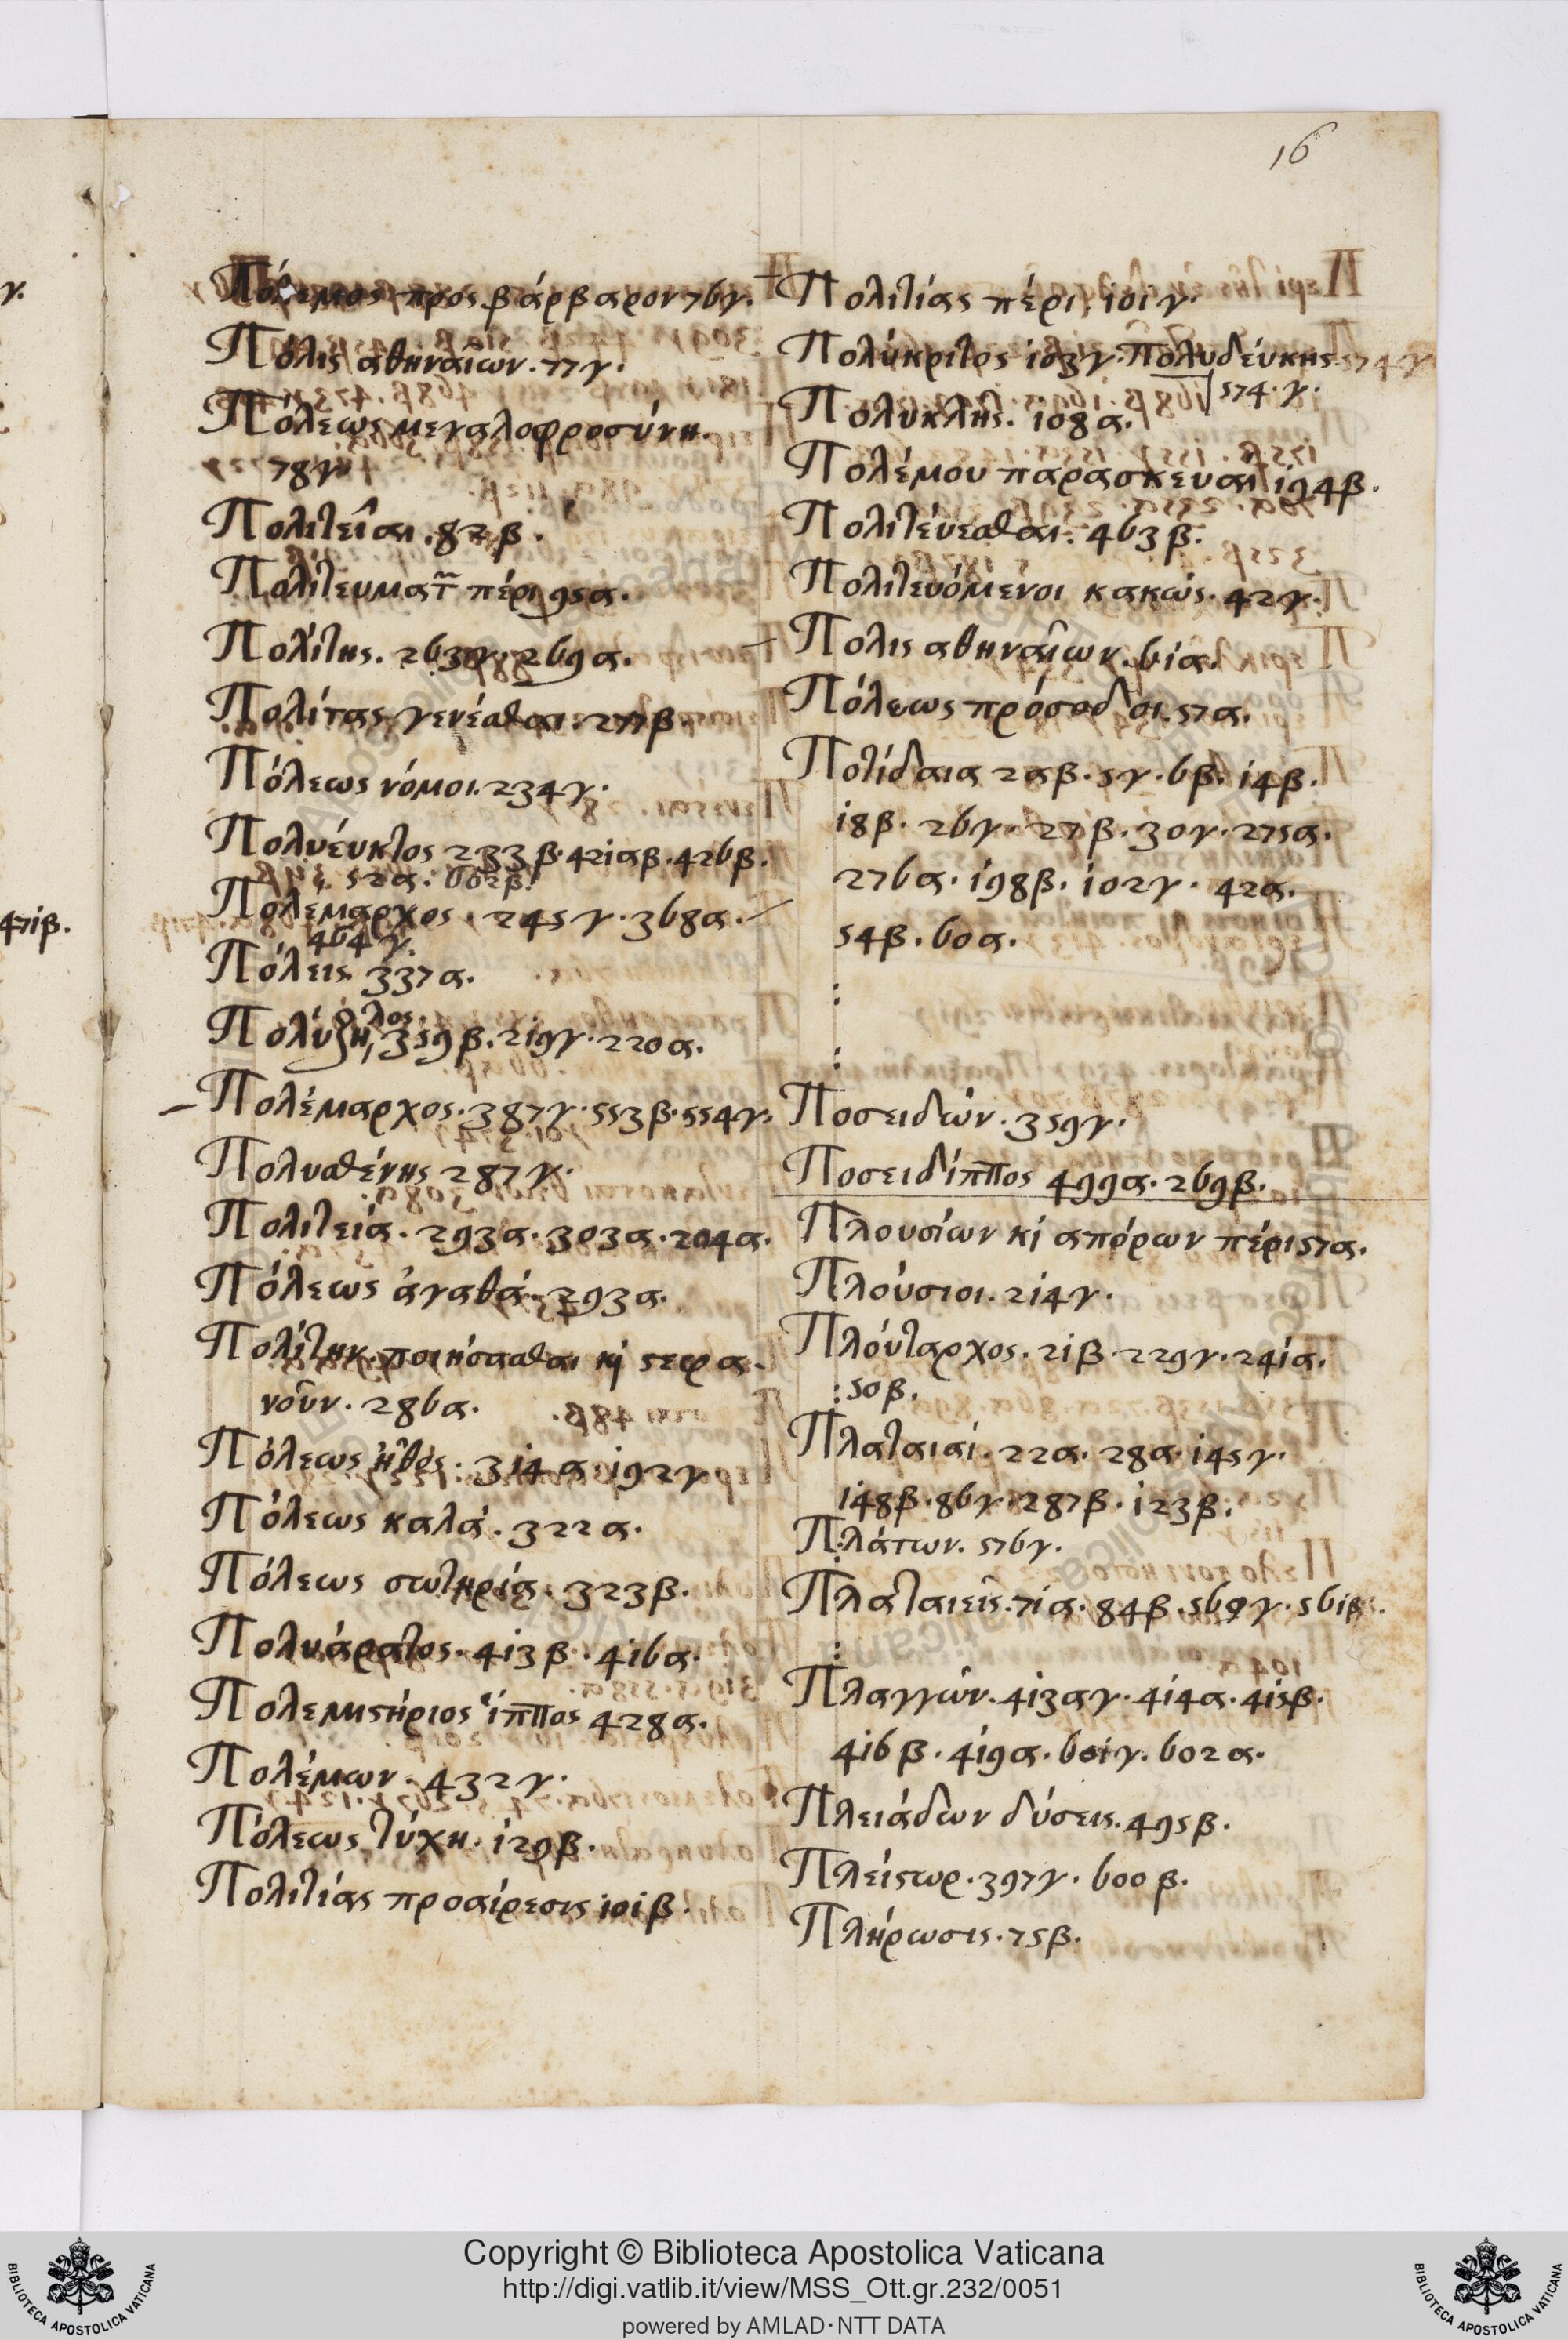 16
Πόλεμος προς βάρβαρον 76γ.
Πόλις αθηναιων. 77γ.
Πόλεως μεγαλοφροσύνη.
78γ.
Πολιτεῖαι. 82β.
Πολίτευματ̅ πέρι 95α.
Πολίτης. 263γ. 269α.
Πολίτας γενέσθαι. 277β.
Πόλεως νόμοι. 234γ.
Πολυέυκτος 233β. 421αβ. 426β.
52α. 602β.
Πολέμαρχος. 245γ. 368α.
464γ.
Πόλεις. 337α.
ηλος.
Πολύζη, 359β. 219γ. 220α.
Πολέμαρχος. 387γ. 553β. 554γ.
Πολυσθένης 287γ.
Πολιτεία. 293α. 303α. 204α.
Πόλεως ἀγαθά. 293α.
Πολίτην ποιήσασθαι κὶ στεφα-
νοῦν. 286α.
Πόλεως ἦθος. 314α. 192γ.
Πόλεως καλά. 322α.
Πόλεως σωτηρία. 323β.
Πολυάρατος. 413β. 416α.
Πολεμιστήριος ἵππος 428α.
Πολέμων. 432γ.
Πόλεως τύχη. 129β.
Πολιτιάς προαίρεσις 101β.
Πολιτιάς πέρι, 101γ.
Πολύκριτος 103γ. Πολυδέυκης 574γ
574.γ.
Πολυκλῆς. 108α.
Πολέμου παρασκευαὶ 194β.
Πολιτέυεσθαι. 463β.
Πολιτευόμενοι κακώς. 42γ.
Πολις αθηναῖων. 61α.
Πόλεως πρόσοδοι. 57α.
Ποτίδαια 2αβ. 5γ. 6β. 14β.
18β. 26γ. 27β. 30γ. 275α.
276α. 198β. 102γ. 42α.
54β. 60α.
:
:
Ποσειδών. 359γ.
Ποσειδίππος 499α. 269β.
Πλουσίων κὶ απόρων πέρι 57α.
Πλούσιοι. 214γ.
Πλούταρχος. 21β. 229γ. 241α.
: 50β.
Πλαταιαί. 22α. 28α. 145γ.
148β. 86γ. 287β. 123β.
Πλάτων. 576γ.
Πλαταιεῖς. 71α. 84β. 569γ. 561β.
:
Πλαγγών. 413αγ. 414α. 415β.
416β. 419α. 601γ. 602α.
Πλειάδων δύσεις. 495β.
Πλείστωρ. 397γ. 600β.
Πλήρωσις. 75β.
γ.
471β.
Copyright © Biblioteca Apostolica Vaticana
http://digi.vatlib.it/view/MSS_Ott.gr.232/0051
powered by AMLAD·NTT DATA
BIBLIOTECA APOSTOLICA VATICANA
BIBLIOTECA APOSTOLICA VATICANA